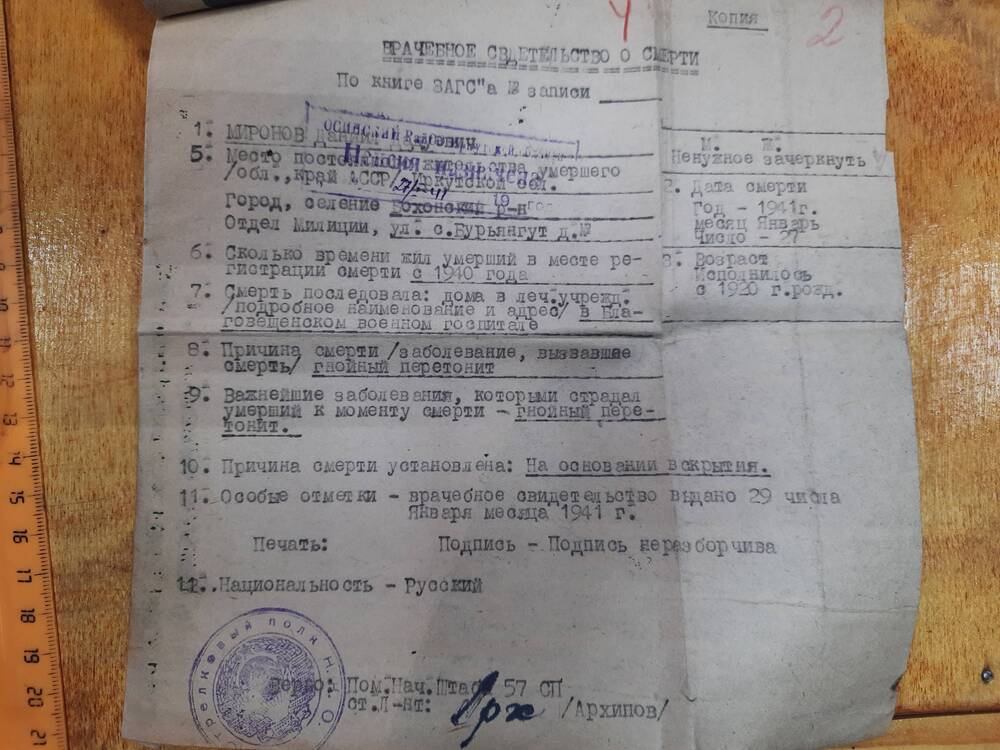 Копия
4
2
ВРАЧЕБНОЕ СВДЕТЕЛЬСТВО О СМЕРТИ
По книге ЗАГС"а № записи
1. МИРОНОВ
М. Ж.
Ненужное зачеркнуть
5. Место жительства умершего
/обл.,край АССР/ Иркутской
Город, селение Бохонский р-н
Отдел Милиции, ул. с.Бурьянгут д.№
2. Дата смерти
Год - 1941г.
месяц Январь
Число - 27
6. Сколько времени жил умерший в месте ре-
гистрации смерти с 1940 года
3. Возраст
Исполнилось
с 1920 г.рожд.
7. Смерть последовала: дома в леч.учрежд.
/подробное наименование и адрес/ в Бла-
говещенском военном госпитале
8. Причина смерти /заболевание, вызвавшее
смерть/ гнойный перетонит
9. Важнейшие заболевания, которыми страдал
умерший к моменту смерти - гнойный пере-
тонит.
10. Причина смерти установлена: На основании вскрытия.
11. Особые отметки - врачебное свидетельство выдано 29 числа
Января месяца 1941 г.
Печать: Подпись - Подпись неразборчива
12. Национальность - Русский
стрелковый полк Н.О.
Верно: Пом.Нач.Штаба 57 СП
ст.Л-нт: Арх /Архипов/
12 13 14 15 16 17 18 19 20 21